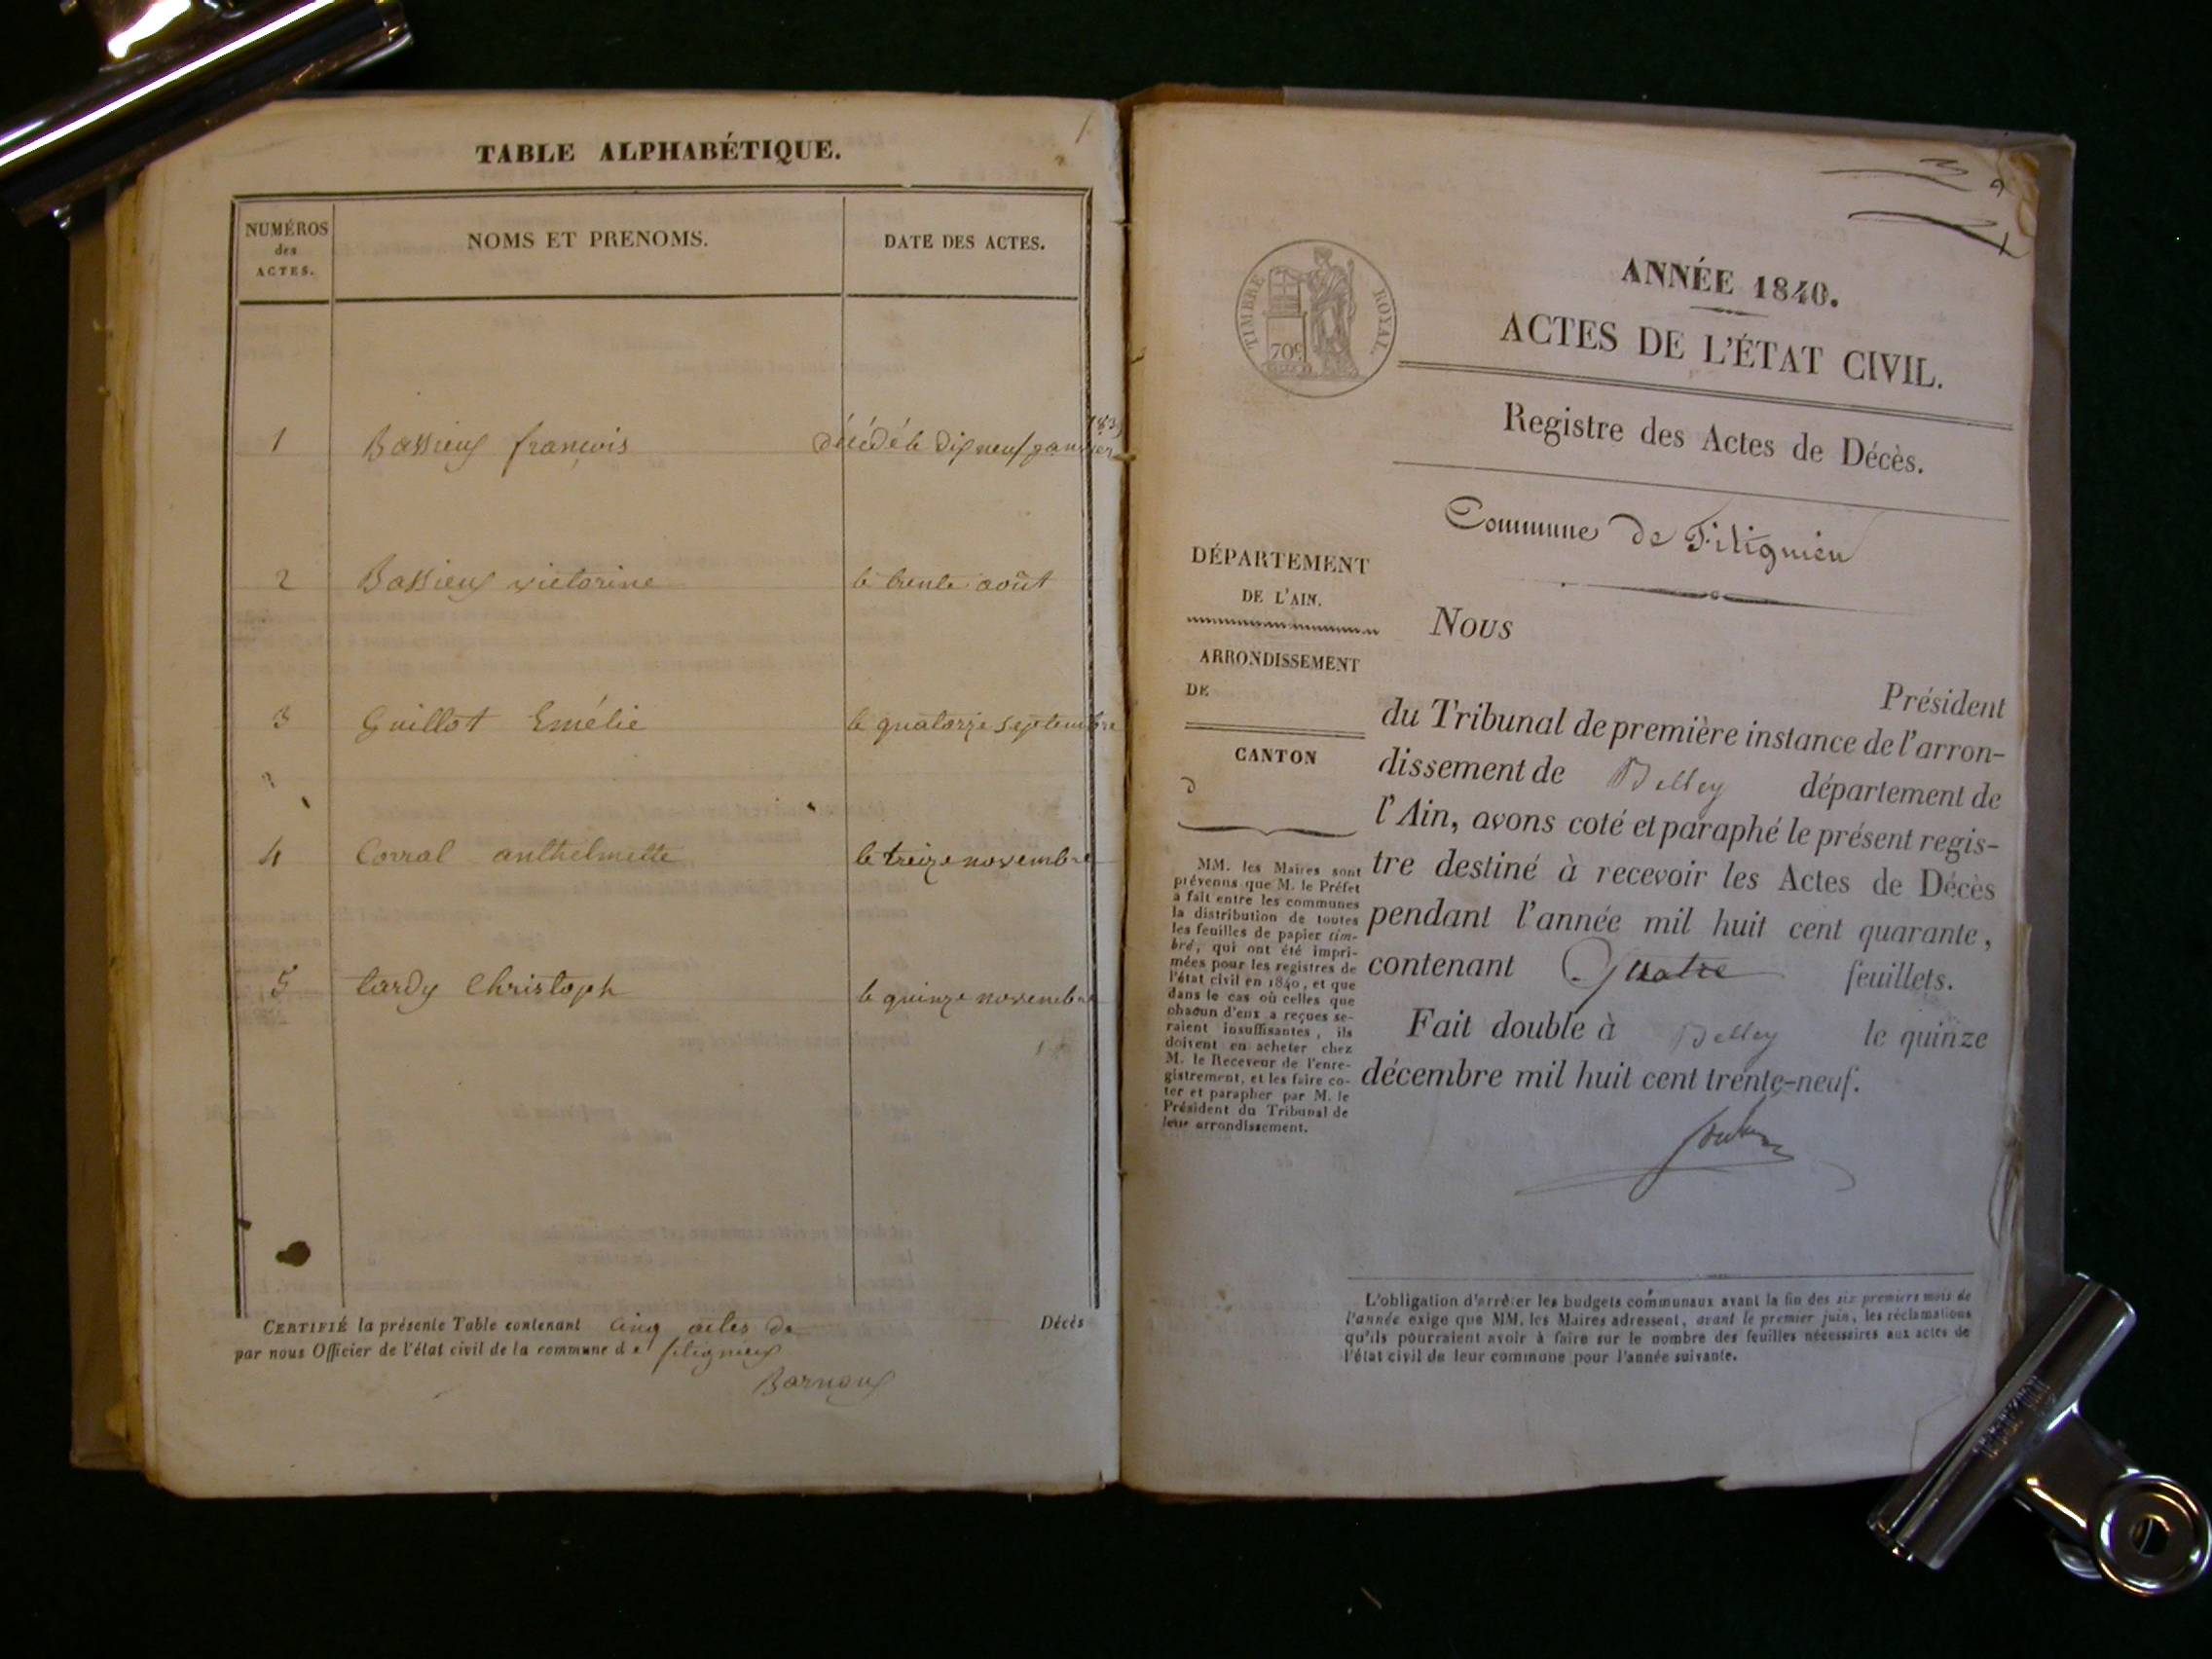 TABLE ALPHABÉTIQUE.
NUMÉROS
des
ACTES.
NOMS ET PRENOMS.
DATE DES ACTES.
1 Bassieux françois décédé le dix neuf janvier
2 Bassieux victorine le trente août
3 Guillot Emélie le quatorze septembre
4 Corral anthelmette le treize novembre
5 tardy Christoph le quinze novembre
CERTIFIÉ la présente Table contenant cinq actes de Décès
par nous Officier de l'état civil de la commune de
TIMBRE ROYAL.
70c
ANNÉE 1840.
ACTES DE L'ÉTAT CIVIL.
Registre des Actes de Décès.
Commune de Fitignieu
DÉPARTEMENT
DE L'AIN.
ARRONDISSEMENT
DE
CANTON
MM. les Maires sont
prévenus que M. le Préfet
a fait entre les communes
la distribution de toutes
les feuilles de papier tim-
bré, qui ont été impri-
mées pour les registres de
l'état civil en 1840, et que
dans le cas où celles que
chacun d'eux a reçues se-
raient insuffisantes, ils
doivent en acheter chez
M. le Receveur de l'enre-
gistrement, et les faire co-
ter et parapher par M. le
Président du Tribunal de
leur arrondissement.
Nous
Président
du Tribunal de première instance de l'arron-
dissement de Belley département de
l'Ain, avons coté et paraphé le présent regis-
tre destiné à recevoir les Actes de Décès
pendant l'année mil huit cent quarante,
contenant Quatre feuillets.
Fait double à Belley le quinze
décembre mil huit cent trente-neuf.
L'obligation d'arrêter les budgets communaux avant la fin des six premiers mois de
l'année exige que MM. les Maires adressent, avant le premier juin, les réclamations
qu'ils pourraient avoir à faire sur le nombre des feuilles nécessaires aux actes de
l'état civil de leur commune pour l'année suivante.